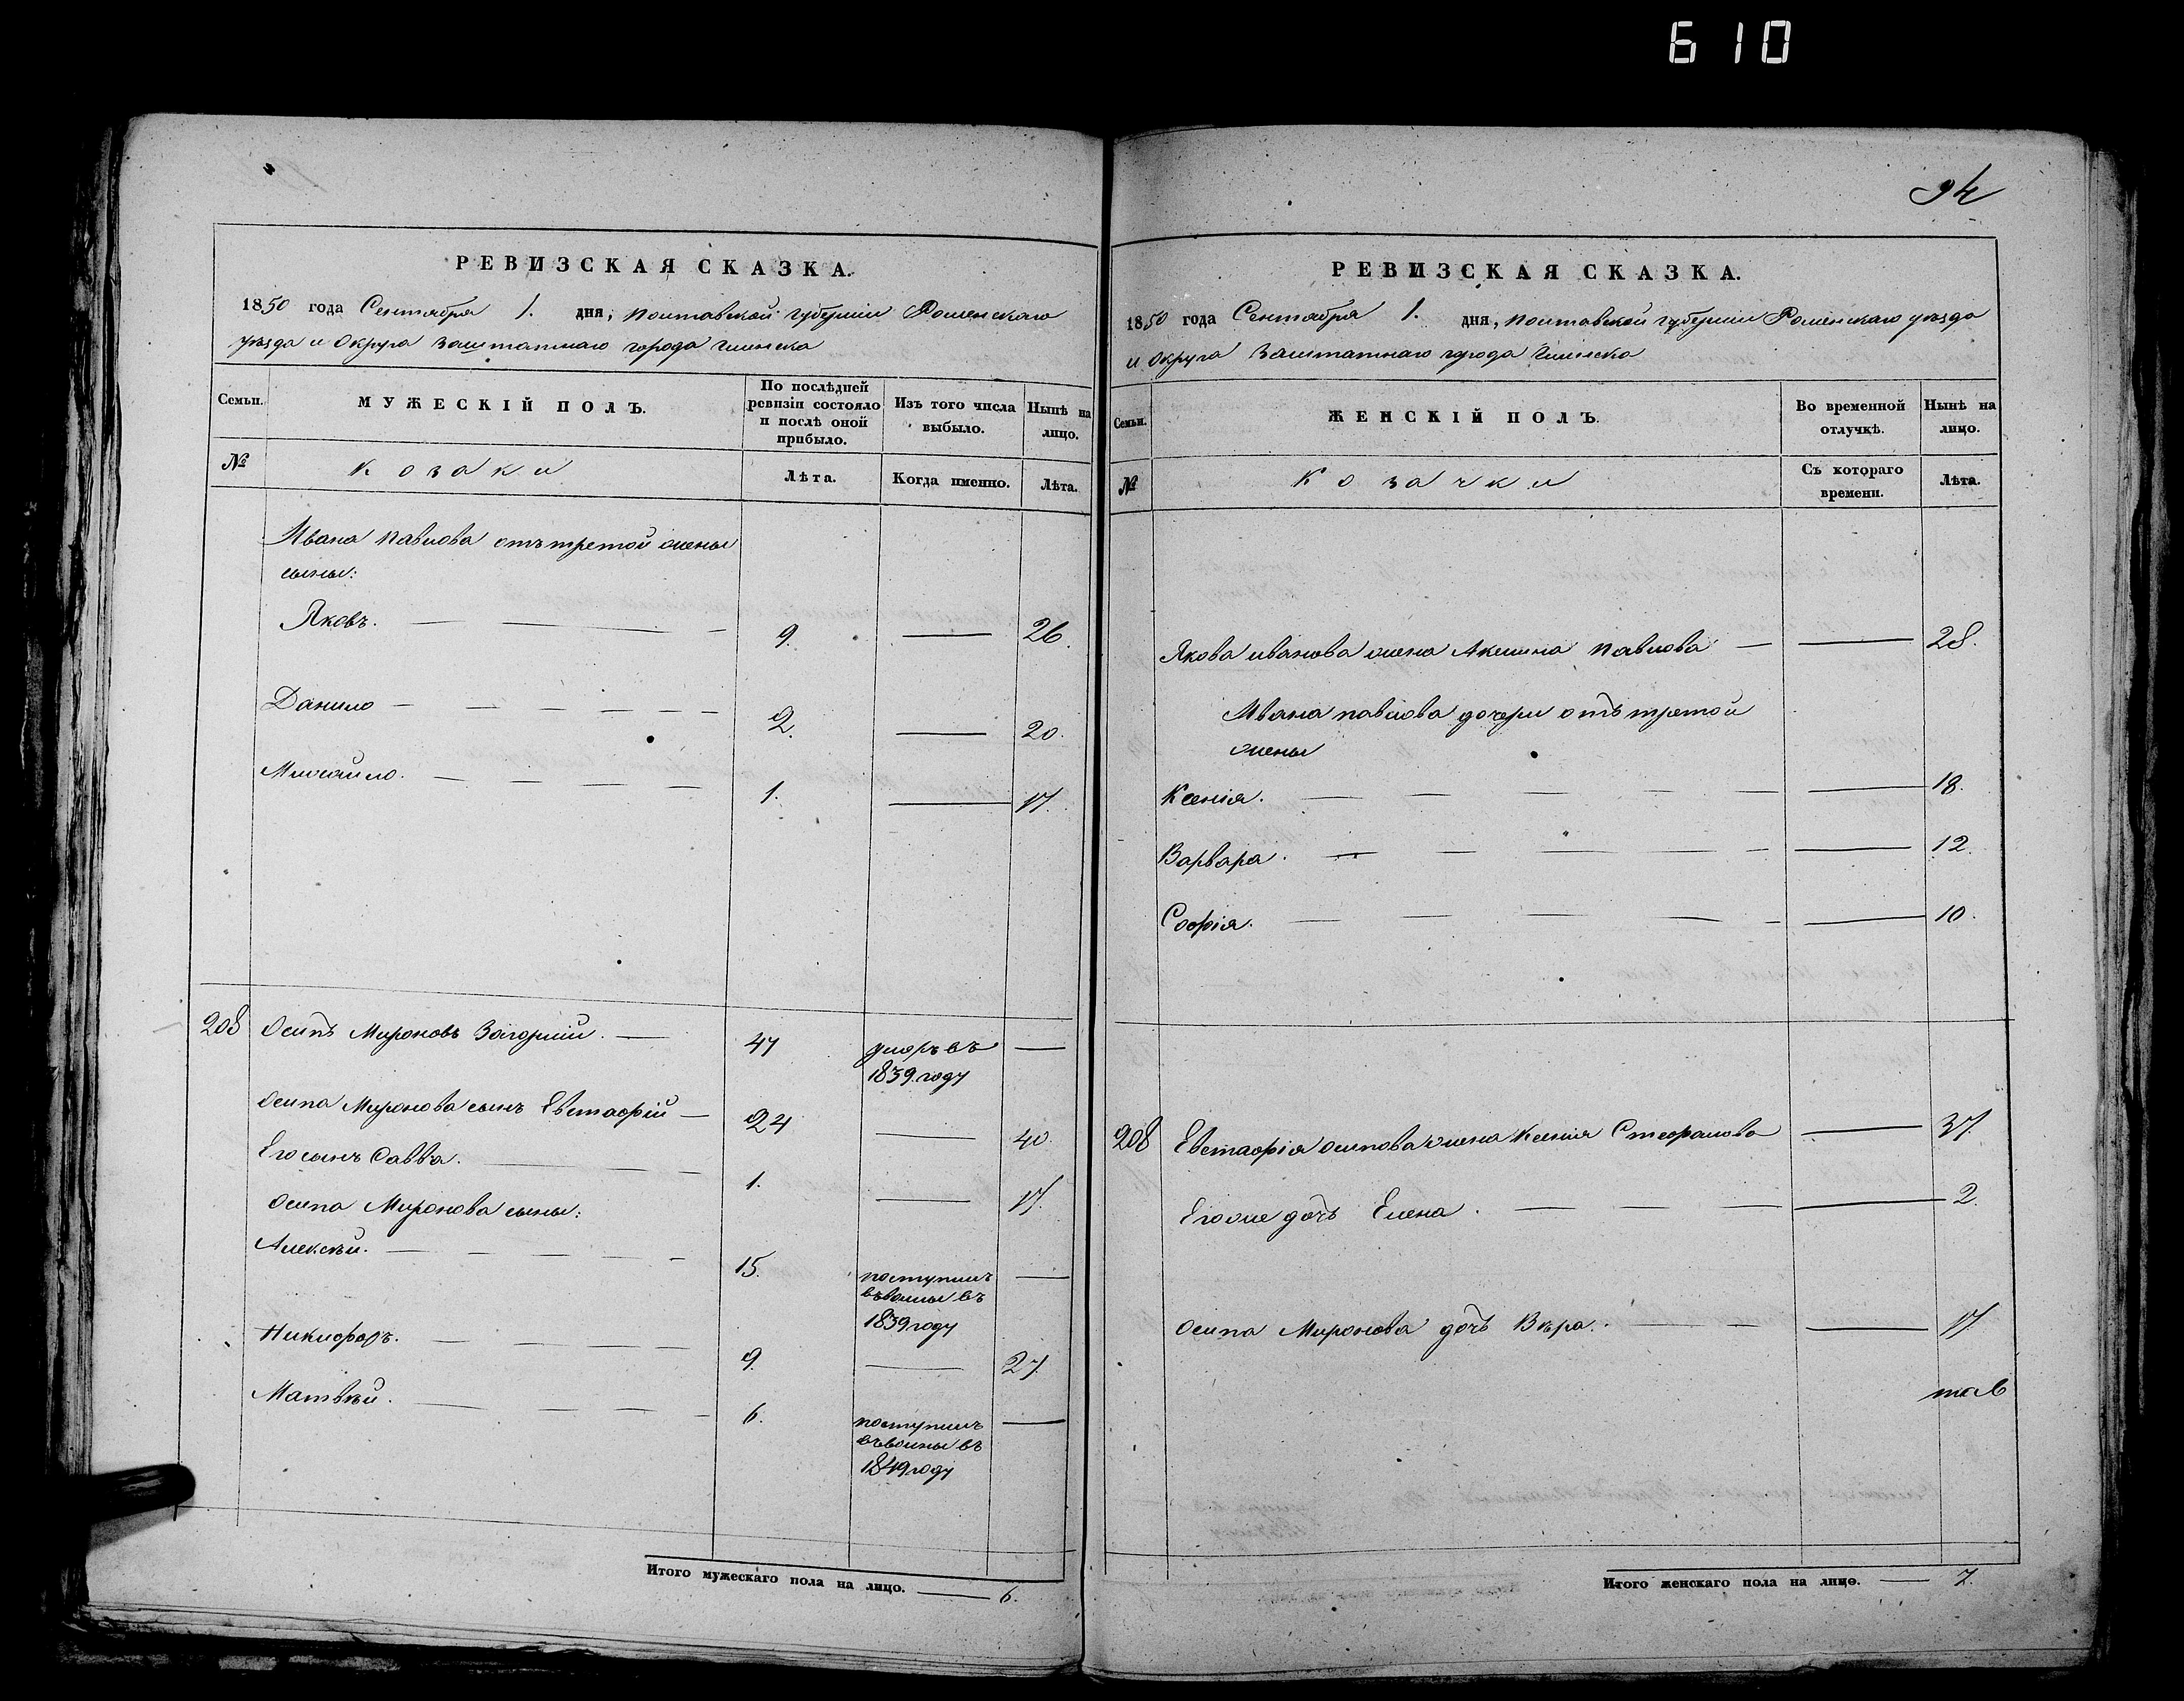 610
РЕВИЗСКАЯ СКАЗКА.
1850 года Сентября 1. дня, Полтавской губерніи Роменскаго
уѣзда и Округа Заштатнаго города Глинска
Семьи.
МУЖЕСКІЙ ПОЛЪ.
По послѣдней
ревизіи состояло
и послѣ оной
прибыло.
Изъ того числа
выбыло.
Нынѣ на
лицо.
№
Козаки
Лѣта.
Когда именно.
Лѣта.
Ивана Павлова отъ третой жены
сыны:
Яковъ. 9. 26.
Данило 2. 20.
Михайло. 1. 17.
208 Осипъ Мироновъ 47 умеръ въ
1839 году
Осипа Миронова сынъ Евстафій 24 40.
Его сынъ Савва. 1. 17.
Осипа Миронова сыны:
Алексѣй. 15. поступилъ
въ воины въ
1839 году
Никифоръ. 9. 27.
Матвѣй. 6. поступилъ
въ воины въ
1849 году
Итого мужескаго пола на лицо. 6.
94
РЕВИЗСКАЯ СКАЗКА.
1850 года Сентября 1. дня, Полтавской губерніи Роменскаго уѣзда
и Округа Заштатнаго города Глинска
Семьи.
ЖЕНСКІЙ ПОЛЪ.
Во временной
отлучкѣ.
Нынѣ на
лицо.
№
Козачки
Съ котораго
времени.
Лѣта.
Якова Иванова жена Акилина Павлова 28.
Ивана Павлова дочери отъ третой
жены
Ксенія. 18.
Варвара. 12.
Софія. 10.
208 Евстафія Осипова жена Ксенія Стефанова 37.
Его же дочь Елена. 2.
Осипа Миронова дочь Вѣра. 17.
Итого женскаго пола на лицо. 7.